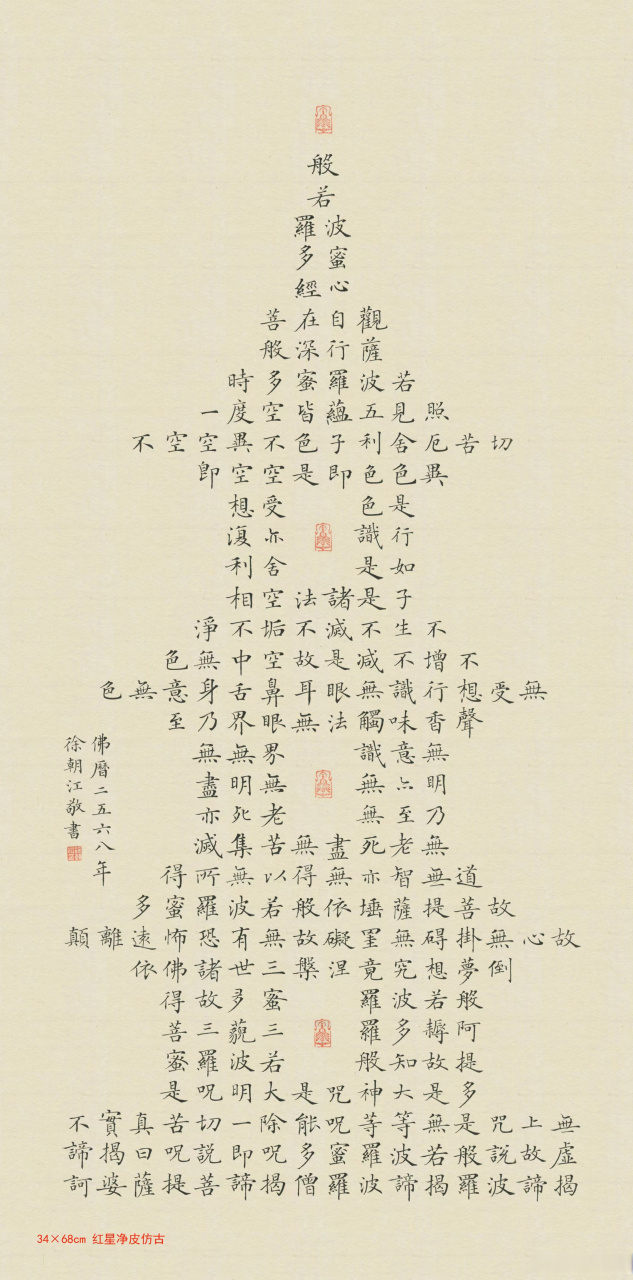 般
若
波羅
蜜多
心經
觀自在菩
薩行深般
若波羅蜜多時
照見五蘊皆空度一
切苦厄舍利子色不異空空不
異色色即是空空即
是色受想
行識亦復
如是舍利
子是諸法空相
不生不滅不垢不淨
不增不減是故空中無色
無受想行識無眼耳鼻舌身意無色
聲香味觸法無眼界乃至
無意識界無無
明亦無無明盡
乃至無老死亦
無老死盡無苦集滅
道無智亦無得以無所得
故菩提薩埵依般若波羅蜜多
故心無掛碍無罣礙故無有恐怖遠離顛
倒夢想究竟涅槃三世諸佛依
般若波羅蜜多故得
阿耨多羅三藐三菩
提故知般若波羅蜜
多是大神咒是大明咒是
無上咒是無等等咒能除一切苦真實不
虛故說般若波羅蜜多咒即說咒曰揭諦
揭諦波羅揭諦波羅僧揭諦菩提薩婆訶
佛曆二五六八年
徐朝江敬書
34×68cm 红星净皮仿古